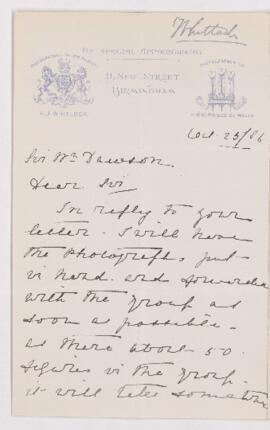 By Special Appointment
11, New Street
Birmingham
H. J. Whitlock
H.R.H. Prince of Wales
Oct 25/86
Sir Wm Dawson
Dear Sir
In reply to your
letter. I will have
the Photographs put
in hand and forwarded
with the group as
soon as possible.
as there about 50
figures in the group.
it will take some time